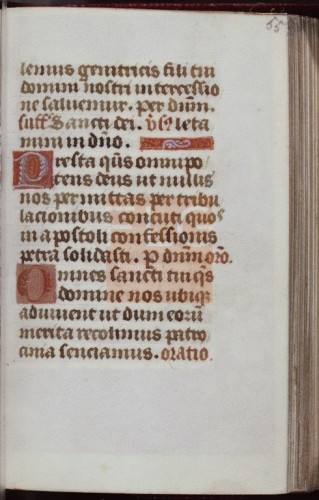 55
lemus genitricis filii tui
domini nostri intercessio
ne saluemur. Per dñm.
suff' Sancti dei. v̄s leta
mini in dño.
Presta qñs omnipo
tens deus ut nullis
nos permittas per tribu
lacionibus concuti quos
in apostoli confessionis
petra solidasti. P dñm oro.
Omnes sancti tui qs
domine nos ubiqꝫ
adiuuent ut dum eorū
merita recolimus patro
cinia senciamus. oratio.